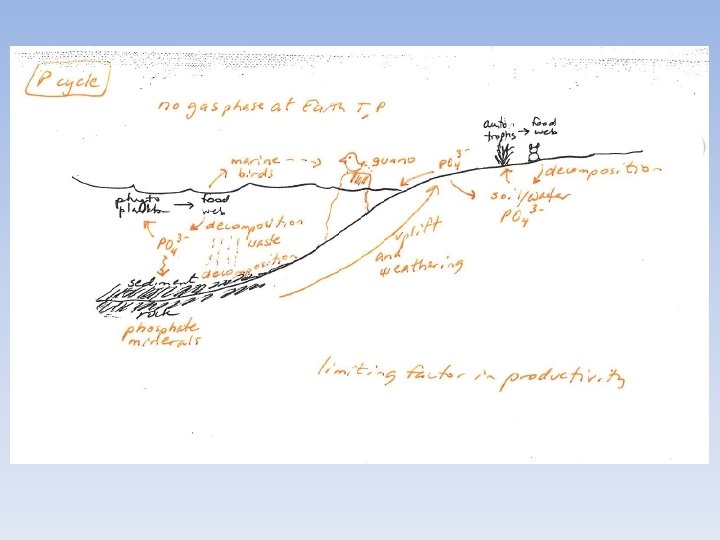 P cycle
no gas phase at Earth T, P
auto-
trophs → food
web
marine
birds
guano
PO₄³⁻
decomposition
soil/water
PO₄³⁻
phyto
plankton → food
web
decomposition
waste
PO₄³⁻
decomposition
uplift
and
weathering
sediment
rock
phosphate
minerals
limiting factor in productivity